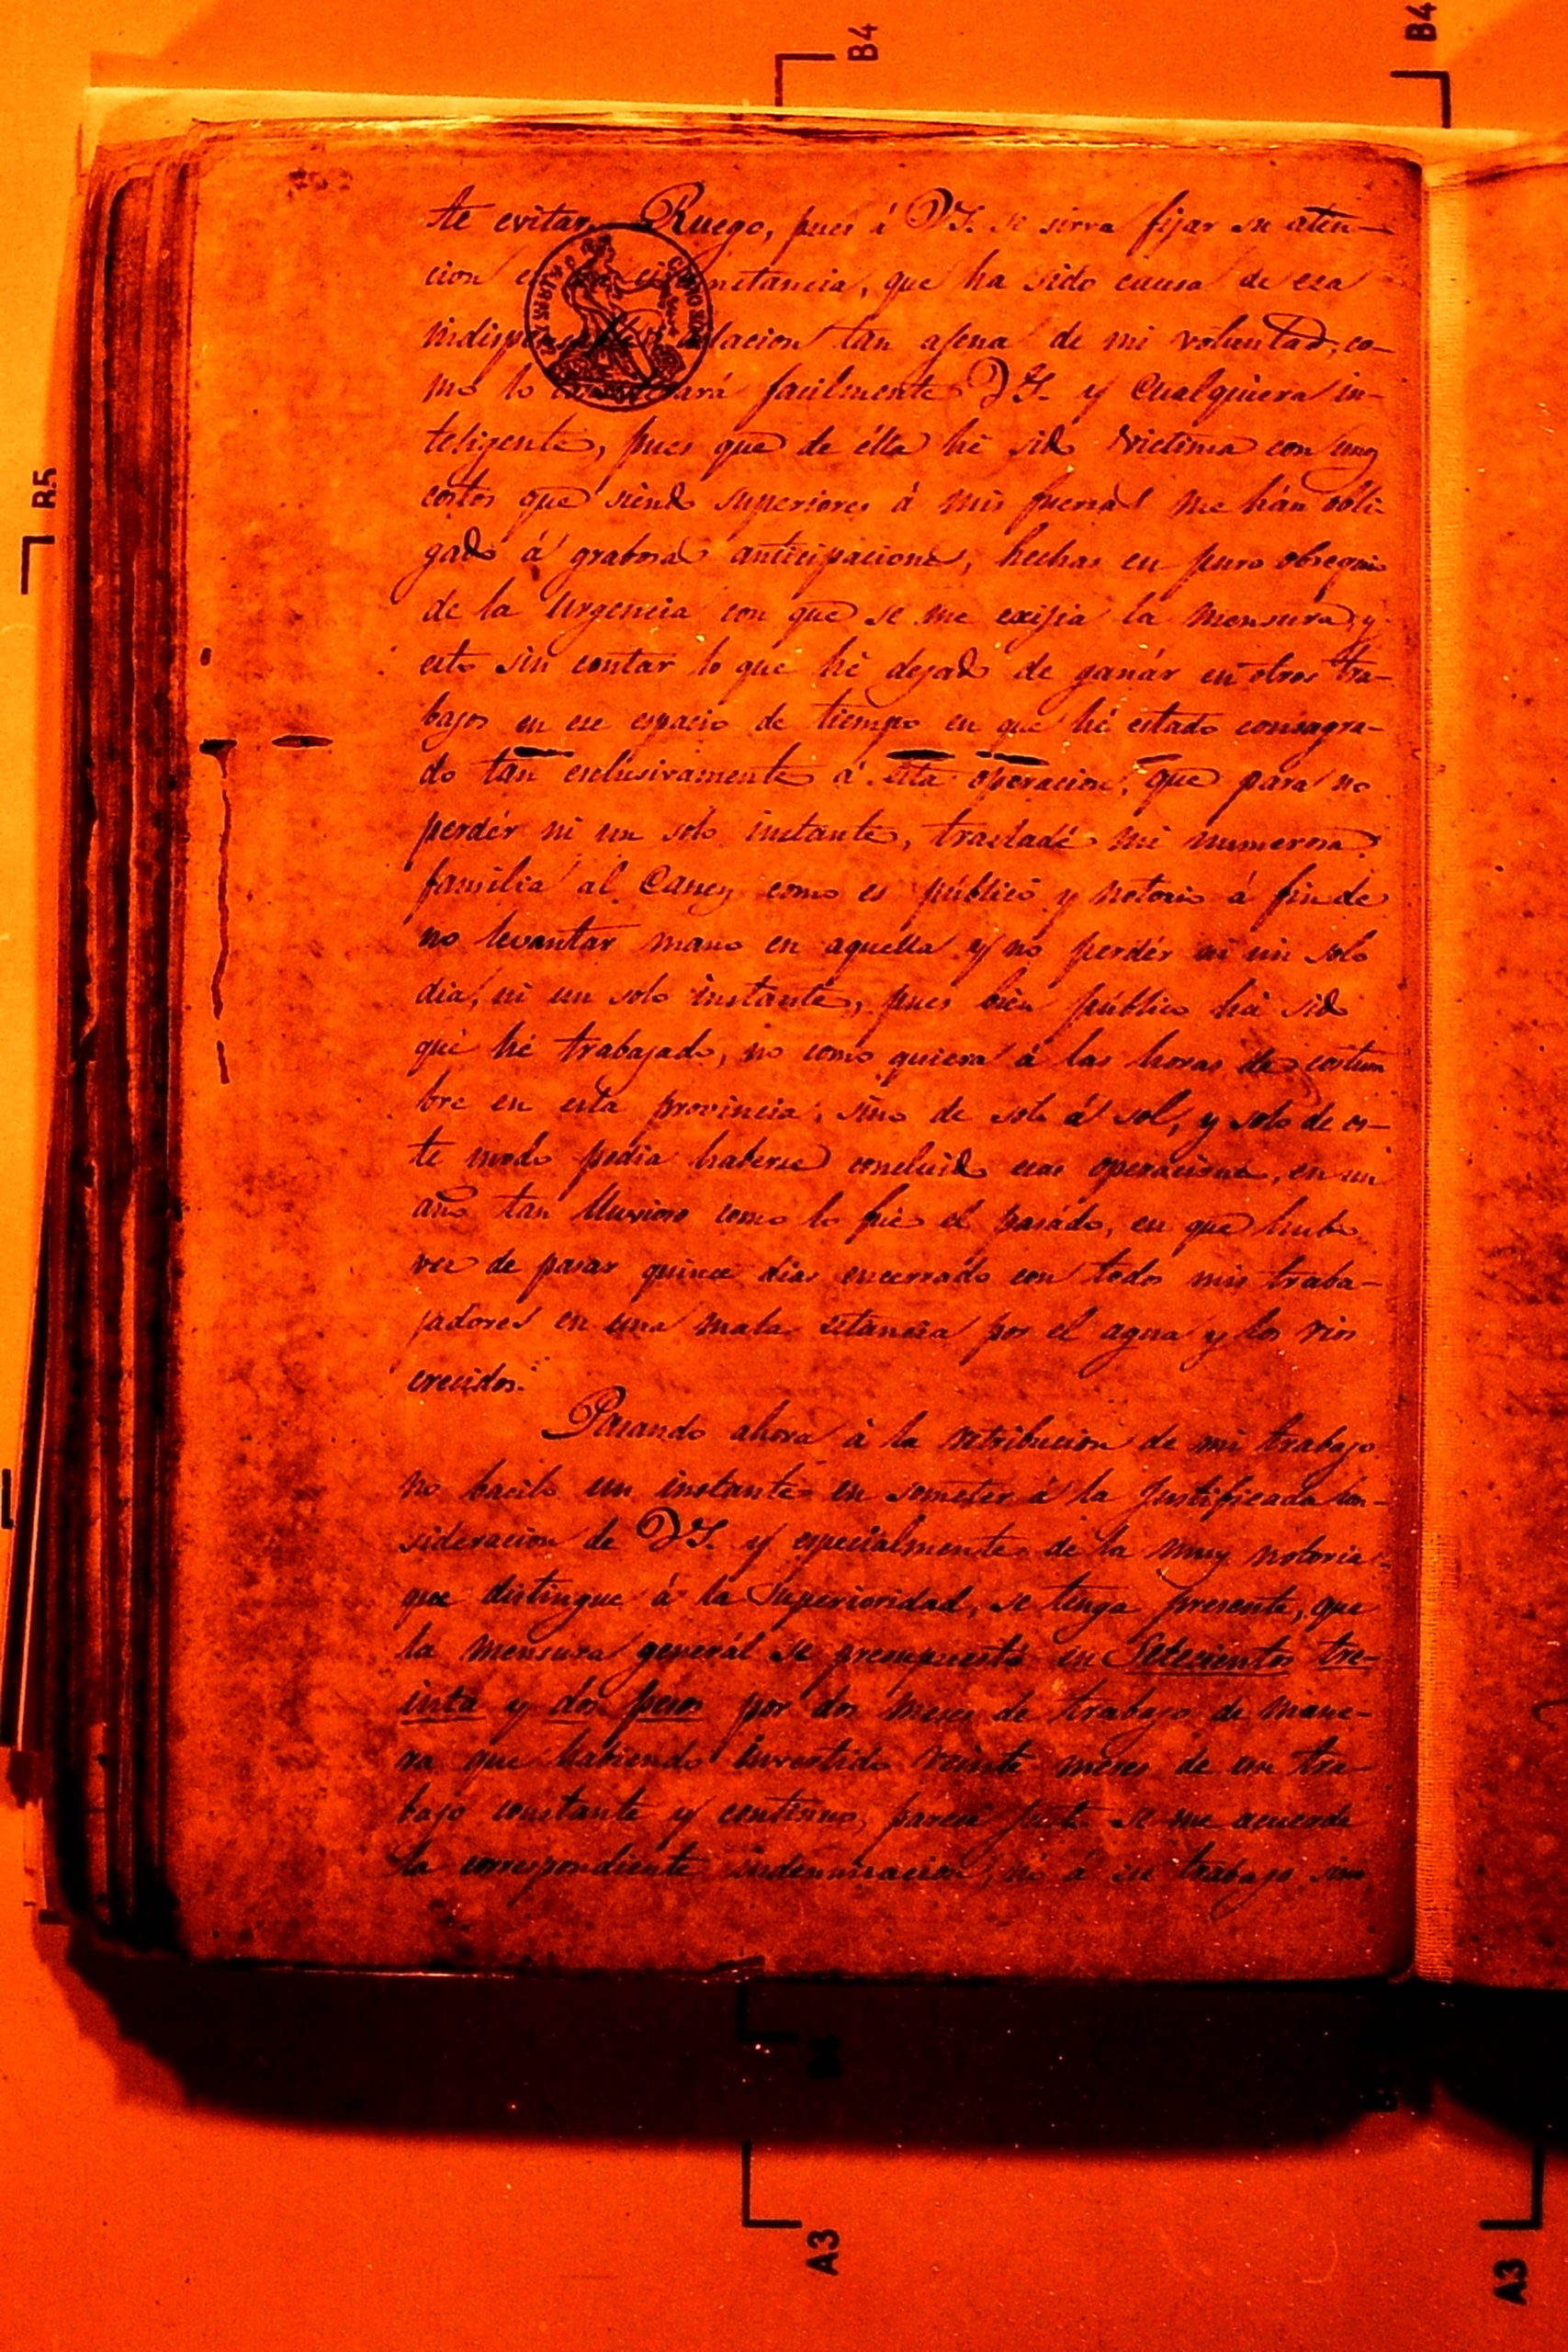 B4
B4
B5
te evitar. Ruego, pues á VS. se sirva fijar su aten-
cion que ha sido causa de esa
tan agena de mi voluntad, co-
mo lo facilmente VS. y cualquiera in-
teligente, pues que de élla hé sido victima con unos
costos que siendo superiores á mis fuerzas me hán obli-
gado á grabosas anticipaciones, hechas en puro obsequio
de la urgencia con que se me exijia la mensura, y
esto sin contar lo que hé dejado de ganár en otros tra-
bajos en ese espacio de tiempo en que hé estado consagra-
do tan esclusivamente á esta operacion, que para no
perdér ni un solo instante, trasladé mi numerosa
familia al Caney como es público y notorio á fin de
no levantar mano en aquella y no perdér ni un solo
dia, ni un solo instante, pues bien público há sido
que hé trabajado, no como quiera á las horas de costum
bre en esta provincia, sino de sol á sol, y solo de es-
te modo podia haberse concluido esas operaciones, en un
año tan lluvioso como lo fué el pasádo, en que hubo
vez de pasar quince dias encerrado con todos mis traba-
jadores en una mala estancia por el agua y los rios
crecidos.
Pasando ahora á la retribucion de mi trabajo
no bacilo un instante en someter á la Justificada con-
sideracion de VS. y especialmente de la muy notoria
que distingue á la Superioridad, se tenga presente, que
la mensura generál se presupuestó en Setecientos tre-
inta y dos pesos por dos meses de trabajo de mane-
ra que habiendo invertido veinte meses de un tra
bajo constante y continuo, parece justo se me acuerde
la correspondiente indemnizacion, no á su trabajo sino
A3
A3